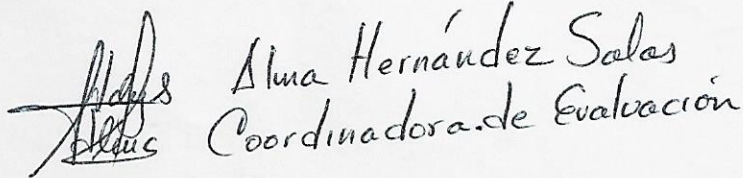 Alma Hernández Salas
Coordinadora.de Evaluación